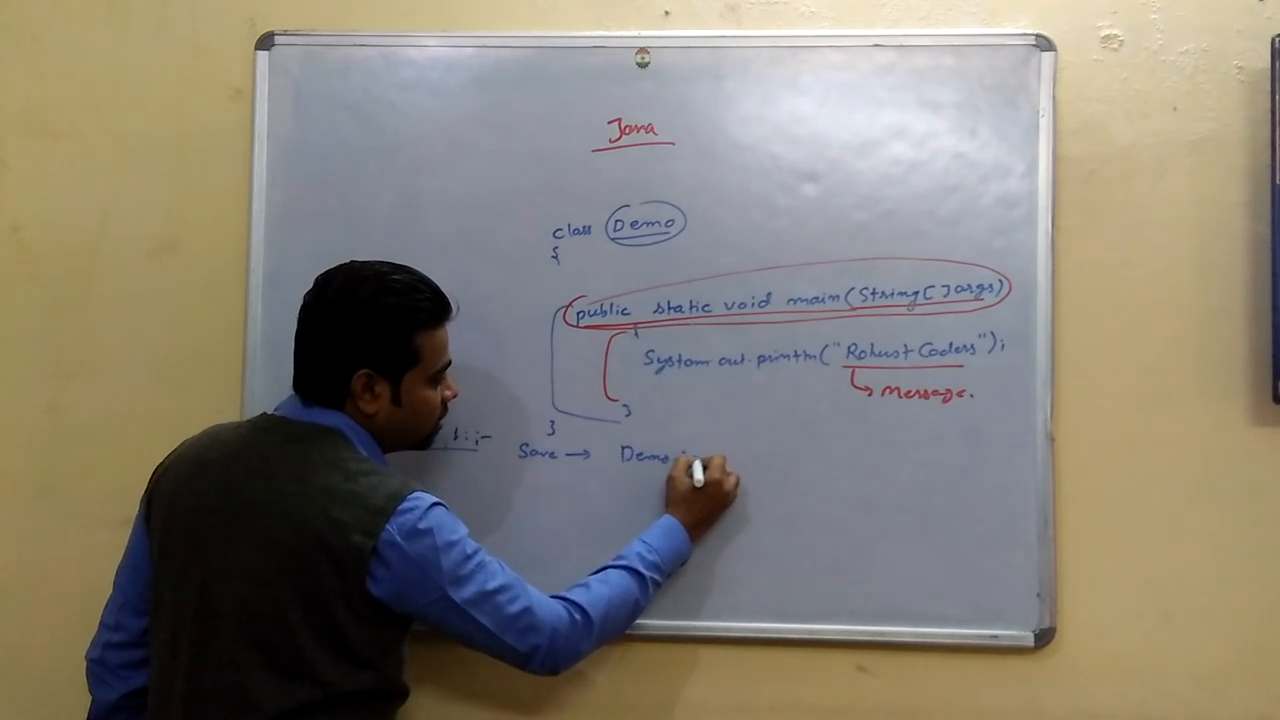 Java
class Demo
{
public static void main(String[]args)
{
System.out.println("Robust Coders");
Message.
}
}
Save → Demo